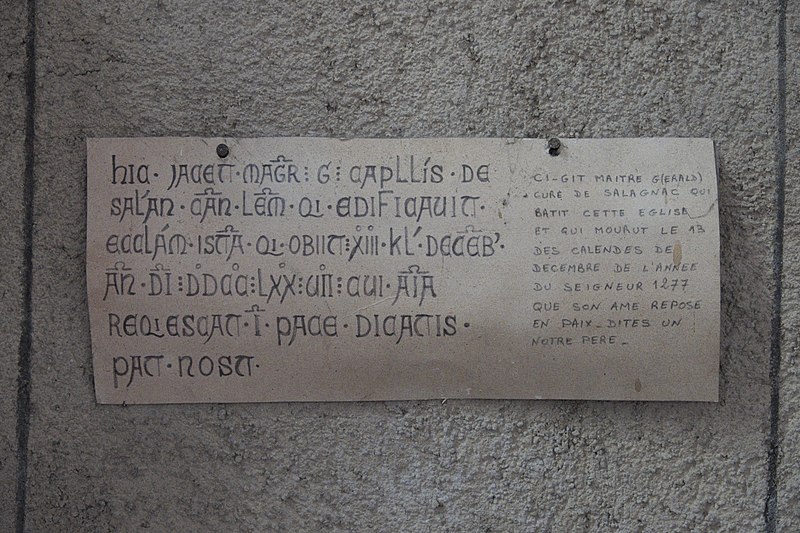 hIC · JACET · MAG̅R ⁝ G ⁝ CAPLLIS · DE
SAL'AN · CA̅N · LE̅M · QI · EDIFICAUIT ·
ECCLAM · ISTA̅ · QI · OBIIT ⁝ XIII · KL' · DECE̅B' ·
A̅N · D̅I ⁝ ⁝ LXX ⁝ UII ⁝ CUI · A̅IA
REQIESCAT · I̅ · PACE · DICATIS ·
PAT · NOST ·
CI-GIT MAITRE G(ERALD)
CURE DE SALAGNAC QUI
BATIT CETTE EGLISE
ET QUI MOURUT LE 13
DES CALENDES DE
DECEMBRE DE L'ANNEE
DU SEIGNEUR 1277
QUE SON AME REPOSE
EN PAIX_ DITES UN
NOTRE PERE_